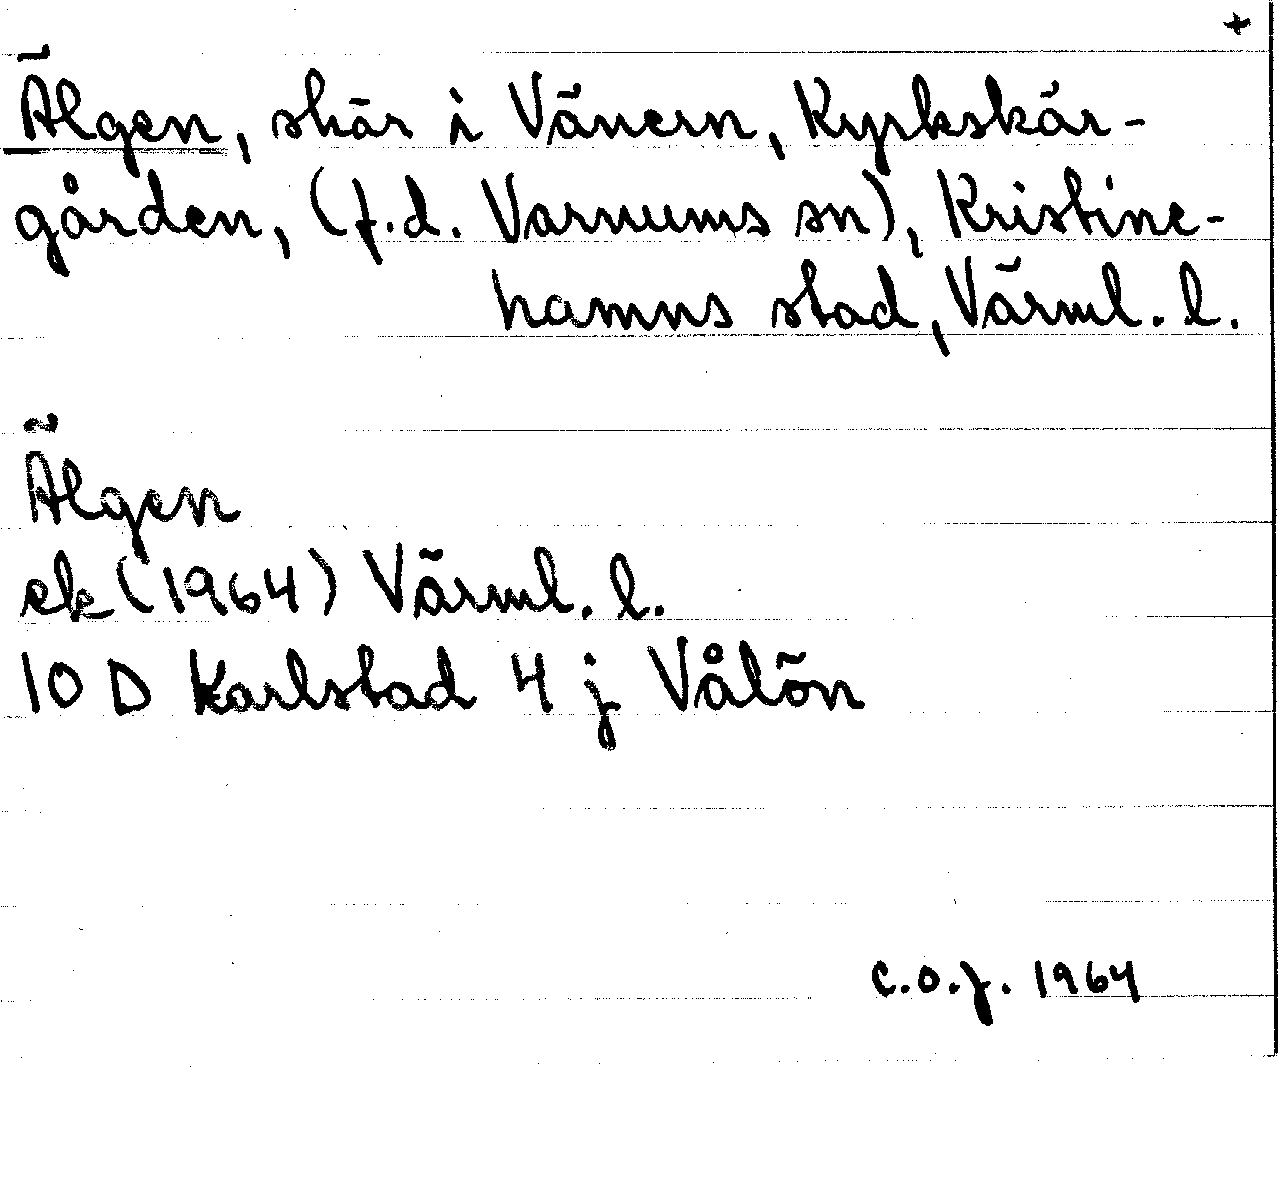 +
Älgen, skär i Vänern, Kyrkskär-
gården, (f.d. Varnums sn), Kristine-
hamns stad, Värml. l.
Älgen
ek (1964) Värml. l.
10 D Karlstad 4 j Vålön
C.O.J. 1964